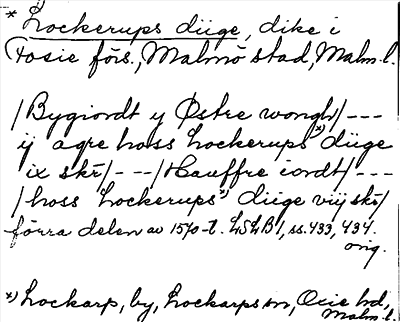 * Lockerups diige, dike i
Fosie förs., Malmö stad, Malm. l.
/Bygiordt y Østre wongh/ ---
ij agre hoss Lockerups x) diige
ix skr/ - --/Hauffre iordt/ ---
/hoss Lockerups x) diige viij skr/
förra delen av 1570-t. LSLB 1, ss. 433, 434.
orig.
x) Lockarp, by, Lockarps sn, Oxie hd,
Malm. l.